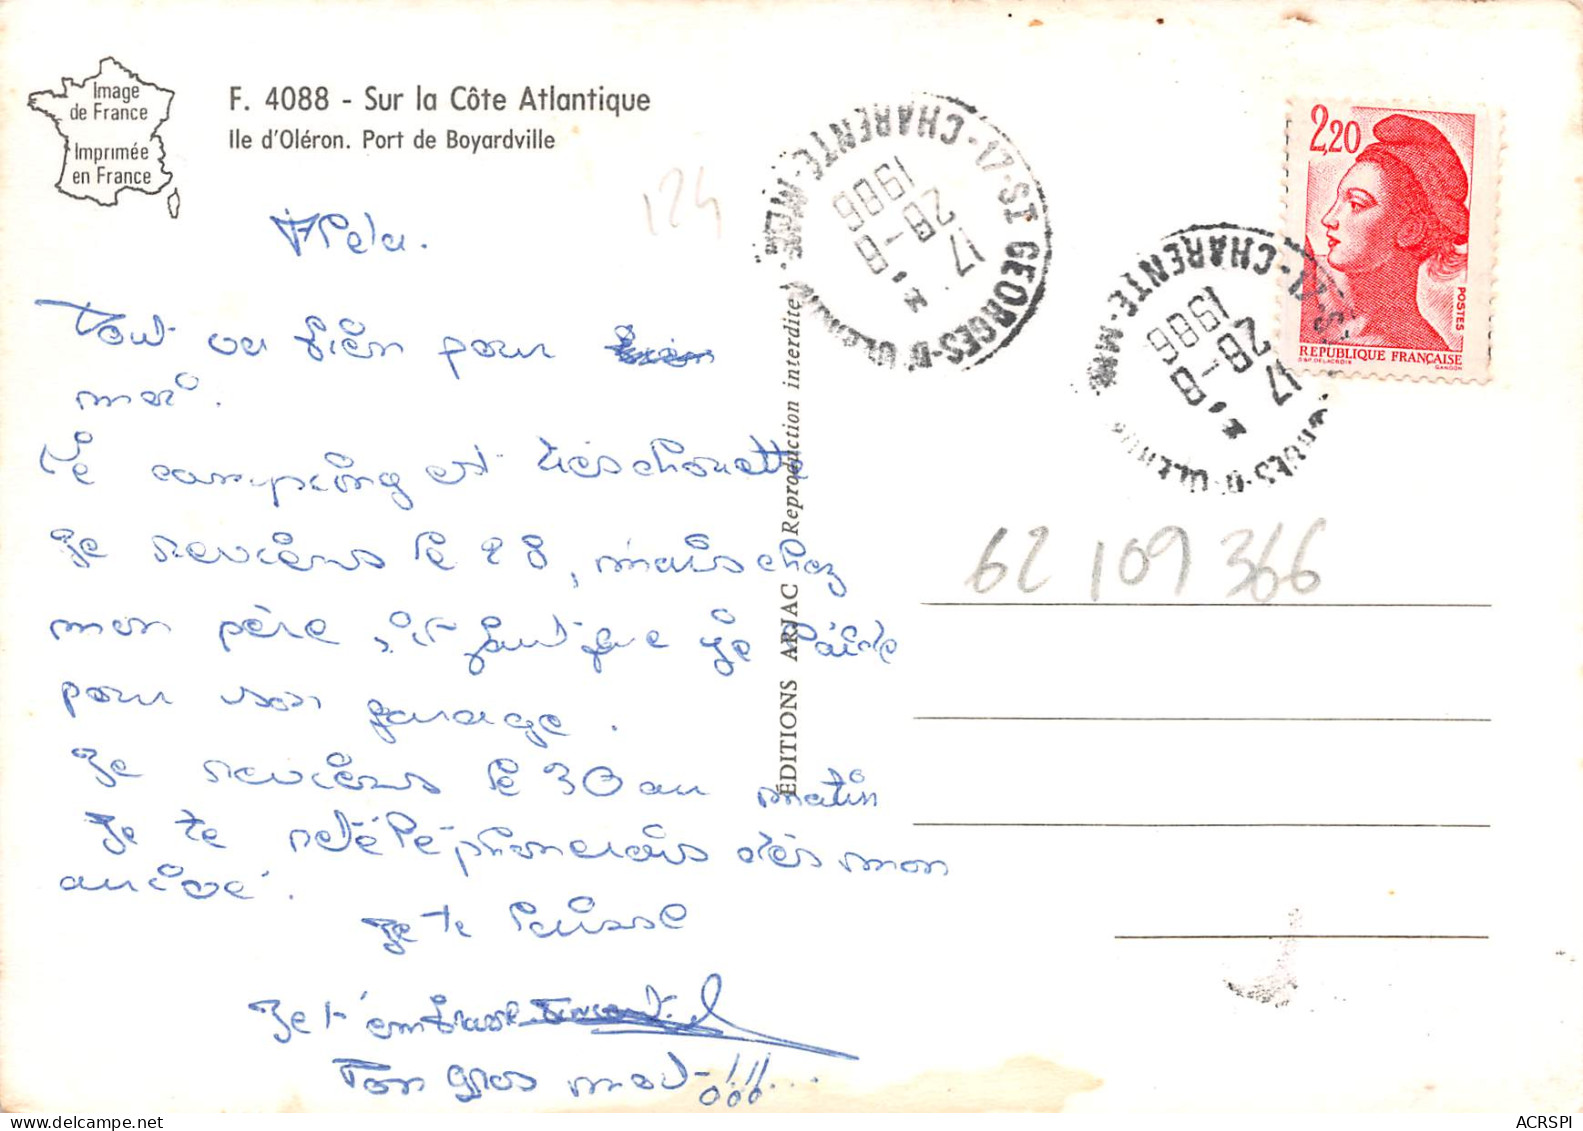 Image
de France
Imprimée
en France
F. 4088 - Sur la Côte Atlantique
Ile d'Oléron. Port de Boyardville
124
Tout va bien pour
moi.
Le camping est très chouette
Je reviens le 28, mais chez
mon père, il faut que je l'aide
pour son garage.
Je reviens le 30 au matin
Je te retéléphonerais dès mon
arrivé.
Je te laisse
Je t'embrasse
Ton gros mat !!!...
ÉDITIONS ARJAC Reproduction interdite
17-ST GEORGES-D'OLERON
CHARENTE-MME
17 H
28-8
1986
CHARENTE-MME
17 H
28-8
1986
2,20
POSTES
REPUBLIQUE FRANÇAISE
D'AP. DELACROIX
GANDON
62 109 366
ACRSPI